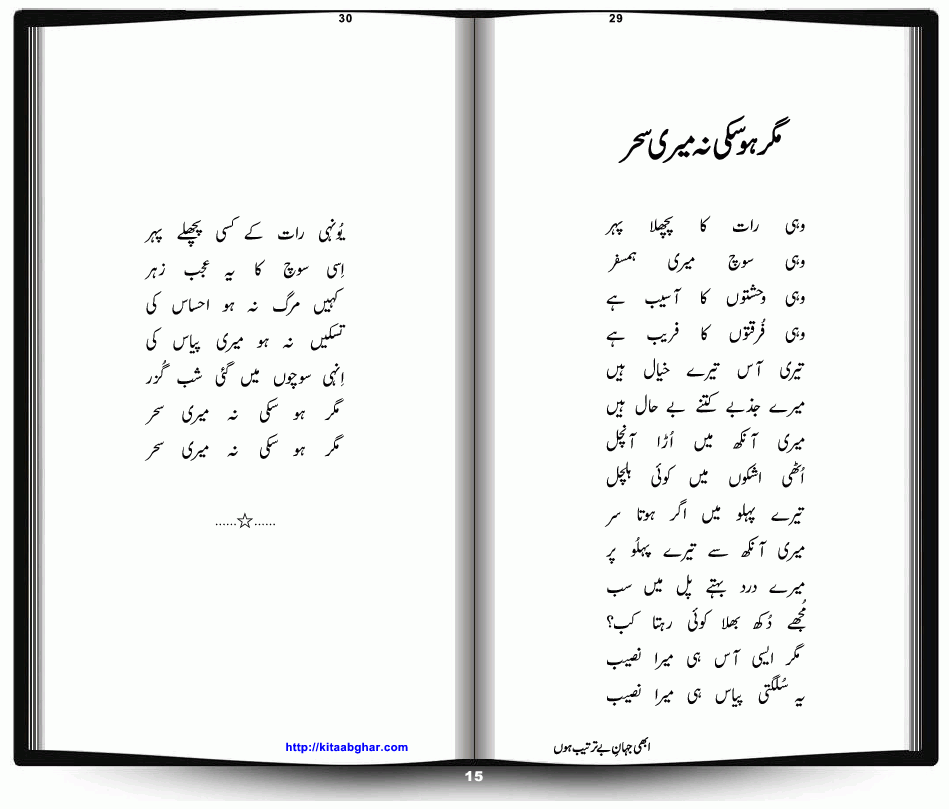 29
مگر ہو سکی نہ میری سحر
وہی رات کا پچھلا پہر
وہی سوچ میری ہمسفر
وہی وحشتوں کا آسیب ہے
وہی فُرقتوں کا فریب ہے
تیری آس تیرے خیال ہیں
میرے جذبے کتنے بے حال ہیں
میری آنکھ میں اُڑا آنچل
اُٹھی اشکوں میں کوئی ہلچل
تیرے پہلو میں اگر ہوتا سر
میری آنکھ سے تیرے پہلُو پر
میرے درد بہتے پل میں سب
مُجھے دُکھ بھلا کوئی رہتا کب؟
مگر ایسی آس ہی میرا نصیب
یہ سُلگتی پیاس ہی میرا نصیب
ابھی جہانِ بے ترتیب ہوں
30
یُونہی رات کے کسی پچھلے پہر
اِسی سوچ کا یہ عجب زہر
کہیں مرگ نہ ہو احساس کی
تسکیں نہ ہو میری پیاس کی
اِنہی سوچوں میں گئی شب گُزر
مگر ہو سکی نہ میری سحر
مگر ہو سکی نہ میری سحر
......☆......
http://kitaabghar.com
15